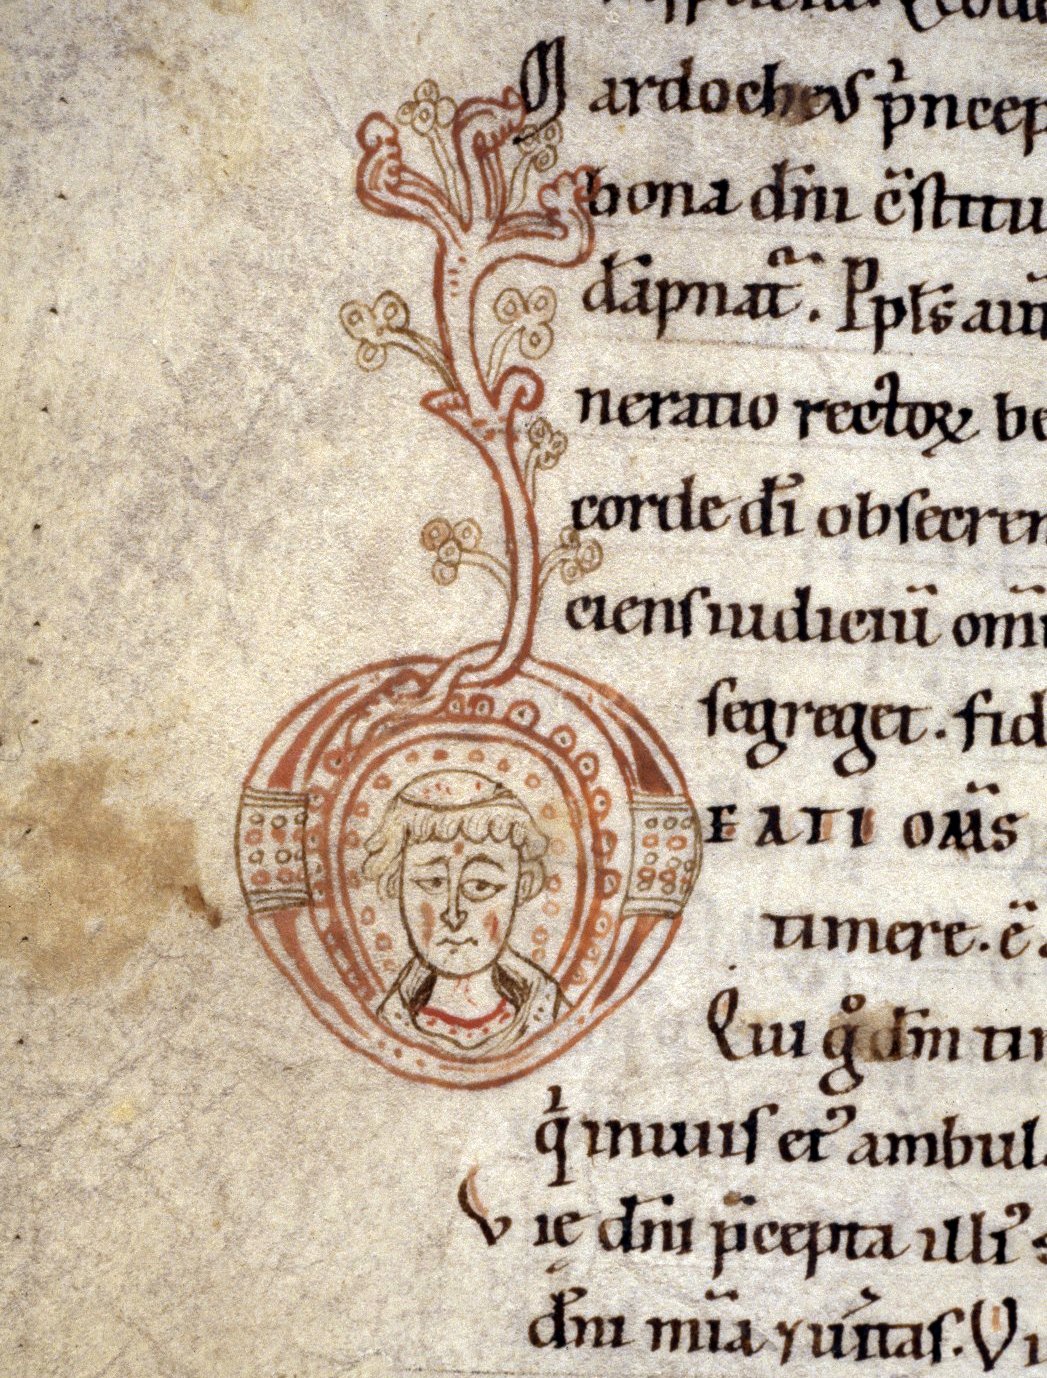 Mardocheus p̄ncep
bona dñi ē stitu
dāpnat᷑. Ppłs aut̄
neratio rectoꝝ be
corde dī obsecren
ciens iudiciū omī
segreget. fid
BEATI om̄s
timere. ē
Qui gͦ dm̄ tim
q̄ in uiis ei᷒ ambula
Vię dñi p̄cepta illi᷒ s
dñi mīa ⁊ uītas. Vi